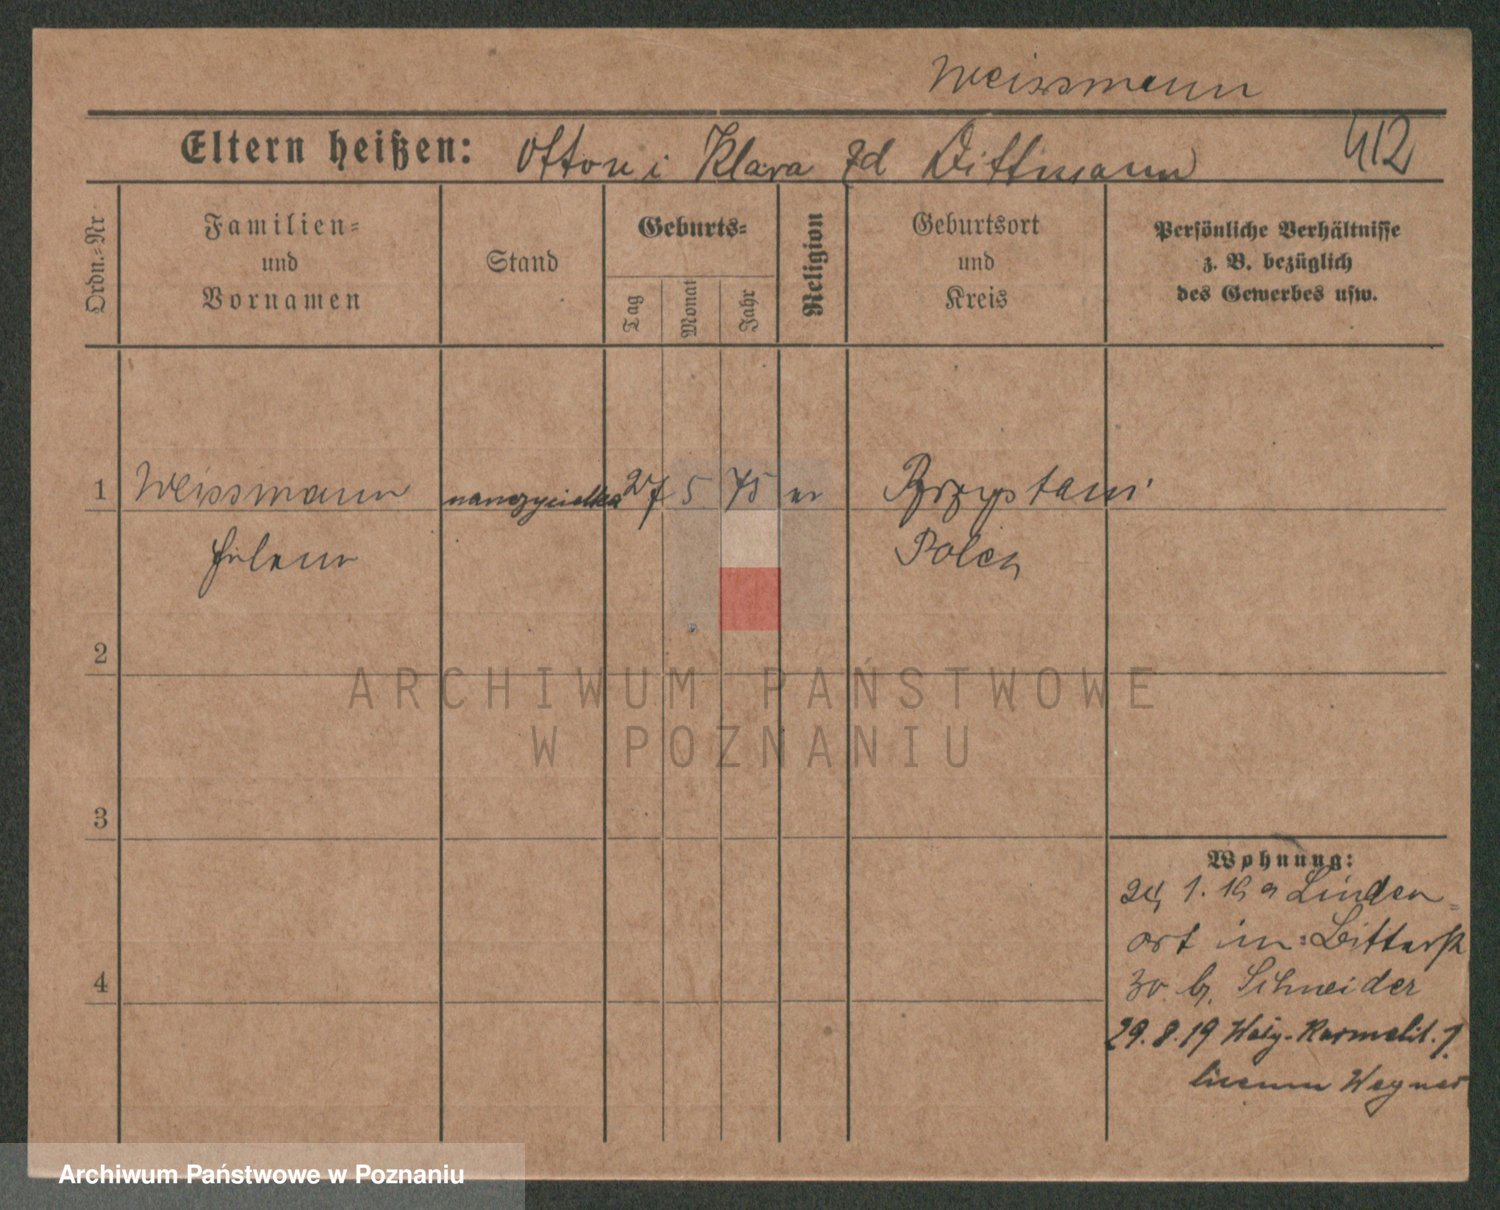 Weissmann
Eltern heißen: Otton i Klara zd Dittmann
412
Ordn.=Nr
Familien=
und
Vornamen
Stand
Geburts=
Tag
Monat
Jahr
Religion
Geburtsort
und
Kreis
Persönliche Verhältnisse
z. B. bezüglich
des Gewerbes usw.
1 Weissmann nauczycielka 27 5 75 ev Przystani
Helene
Polen
2
ARCHIWUM PAŃSTWOWE
W POZNANIU
3
Wohnung:
24 1. 19 a Linden=
ort
b. Schneider
4
29.8.19 Waly-Karmelit. 1.
Wegner
Archiwum Państwowe w Poznaniu